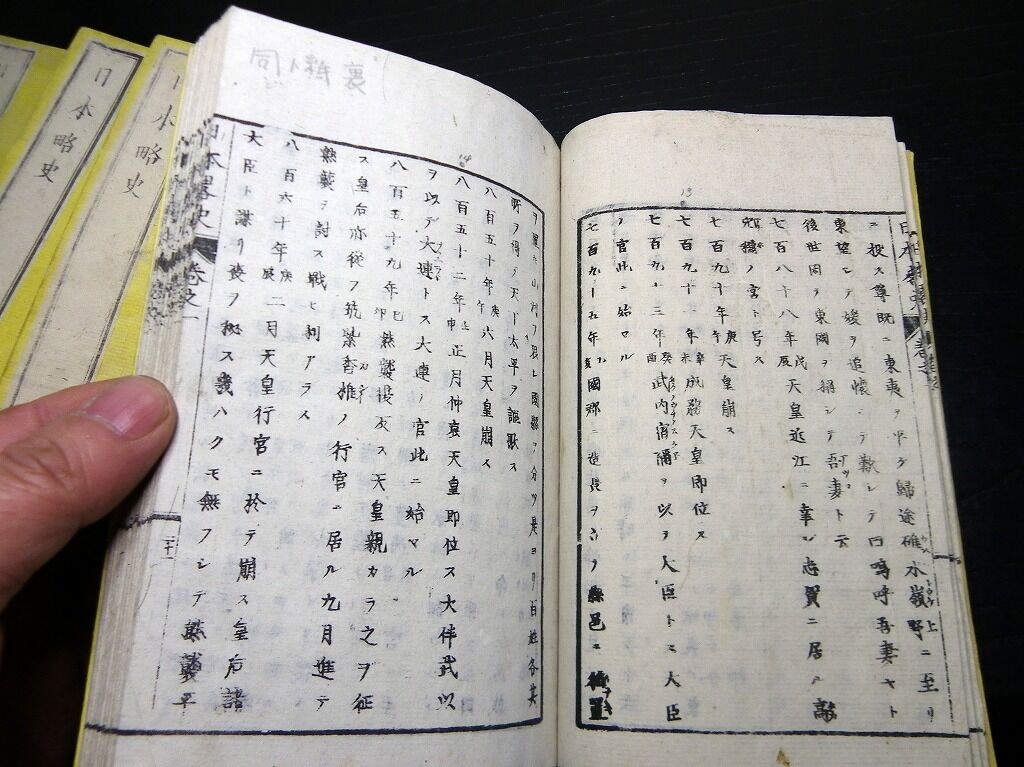 日本略史
日本略史
同ト紙裏
13
ニ投ス尊既ニ東夷ヲ平ケ歸途碓水嶺野上ニ至リ
東望シテ媛ヲ追懐シ歎シテ曰嗚呼吾妻ヤト
後世因ヲ東國ヲ稱シテ吾妻ト云
七百八十八年戊辰天皇近江ニ幸シ志賀ニ居ル
穴穂ノ宮ト号ス
七百九十年庚午天皇崩ス
七百九十一年辛未成務天皇即位ス
七百九十三年癸酉武内宿禰ヲ以テ大臣トス大臣
ノ官此ニ始マル
七百九十五年乙亥國郡ニ造長ヲ
縣邑ニ
14
山河ヲ
國縣ヲ分ツ是ヨリ百姓各其
所ヲ得テ天下太平ヲ謳歌ス
八百五十年庚午六月天皇崩ス
八百五十二年壬申正月仲哀天皇即位ス大伴武以
ヲ以テ大連トス大連ノ官此ニ始マル
八百五十九年己卯熊襲復反ス天皇親カラ之ヲ征
ス皇后亦從フ筑紫香椎ノ行宮ニ居ル九月進テ
熊襲ヲ討ス戰ヒ利アラス
八百六十年庚辰二月天皇行宮ニ於テ崩ス皇后諸
大臣ト謀リ喪ヲ秘ス幾ハクモ無フシテ熊襲平
日本畧史 卷之一